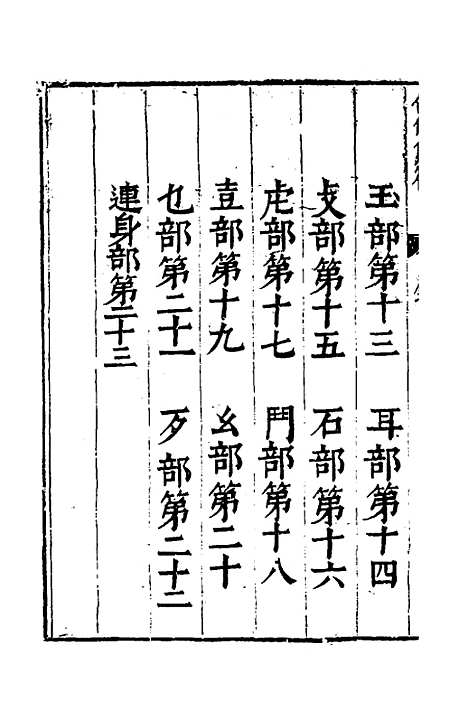 玉部第十三　耳部第十四
攴部第十五　石部第十六
虍部第十七　鬥部第十八
壴部第十九　幺部第二十
乜部第二十一　歹部第二十二
連身部第二十三